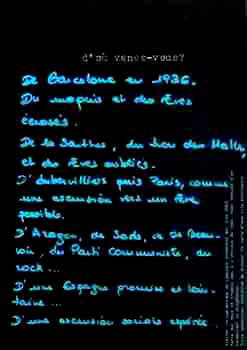 d'où venez-vous?
De Barcelone en 1936.
Du maquis et des rêves
écrasés.
De la Sarthe, du trou des Halles,
et des rêves oubliés.
D'Aubervilliers puis Paris, comme
une ascension vers un rêve
possible.
D'Aragon, de Sade, de Beau-
voir, du Parti Communiste, du
rock ...
D'une Espagne promise et loin-
taine ...
D'une ascension sociale espérée.